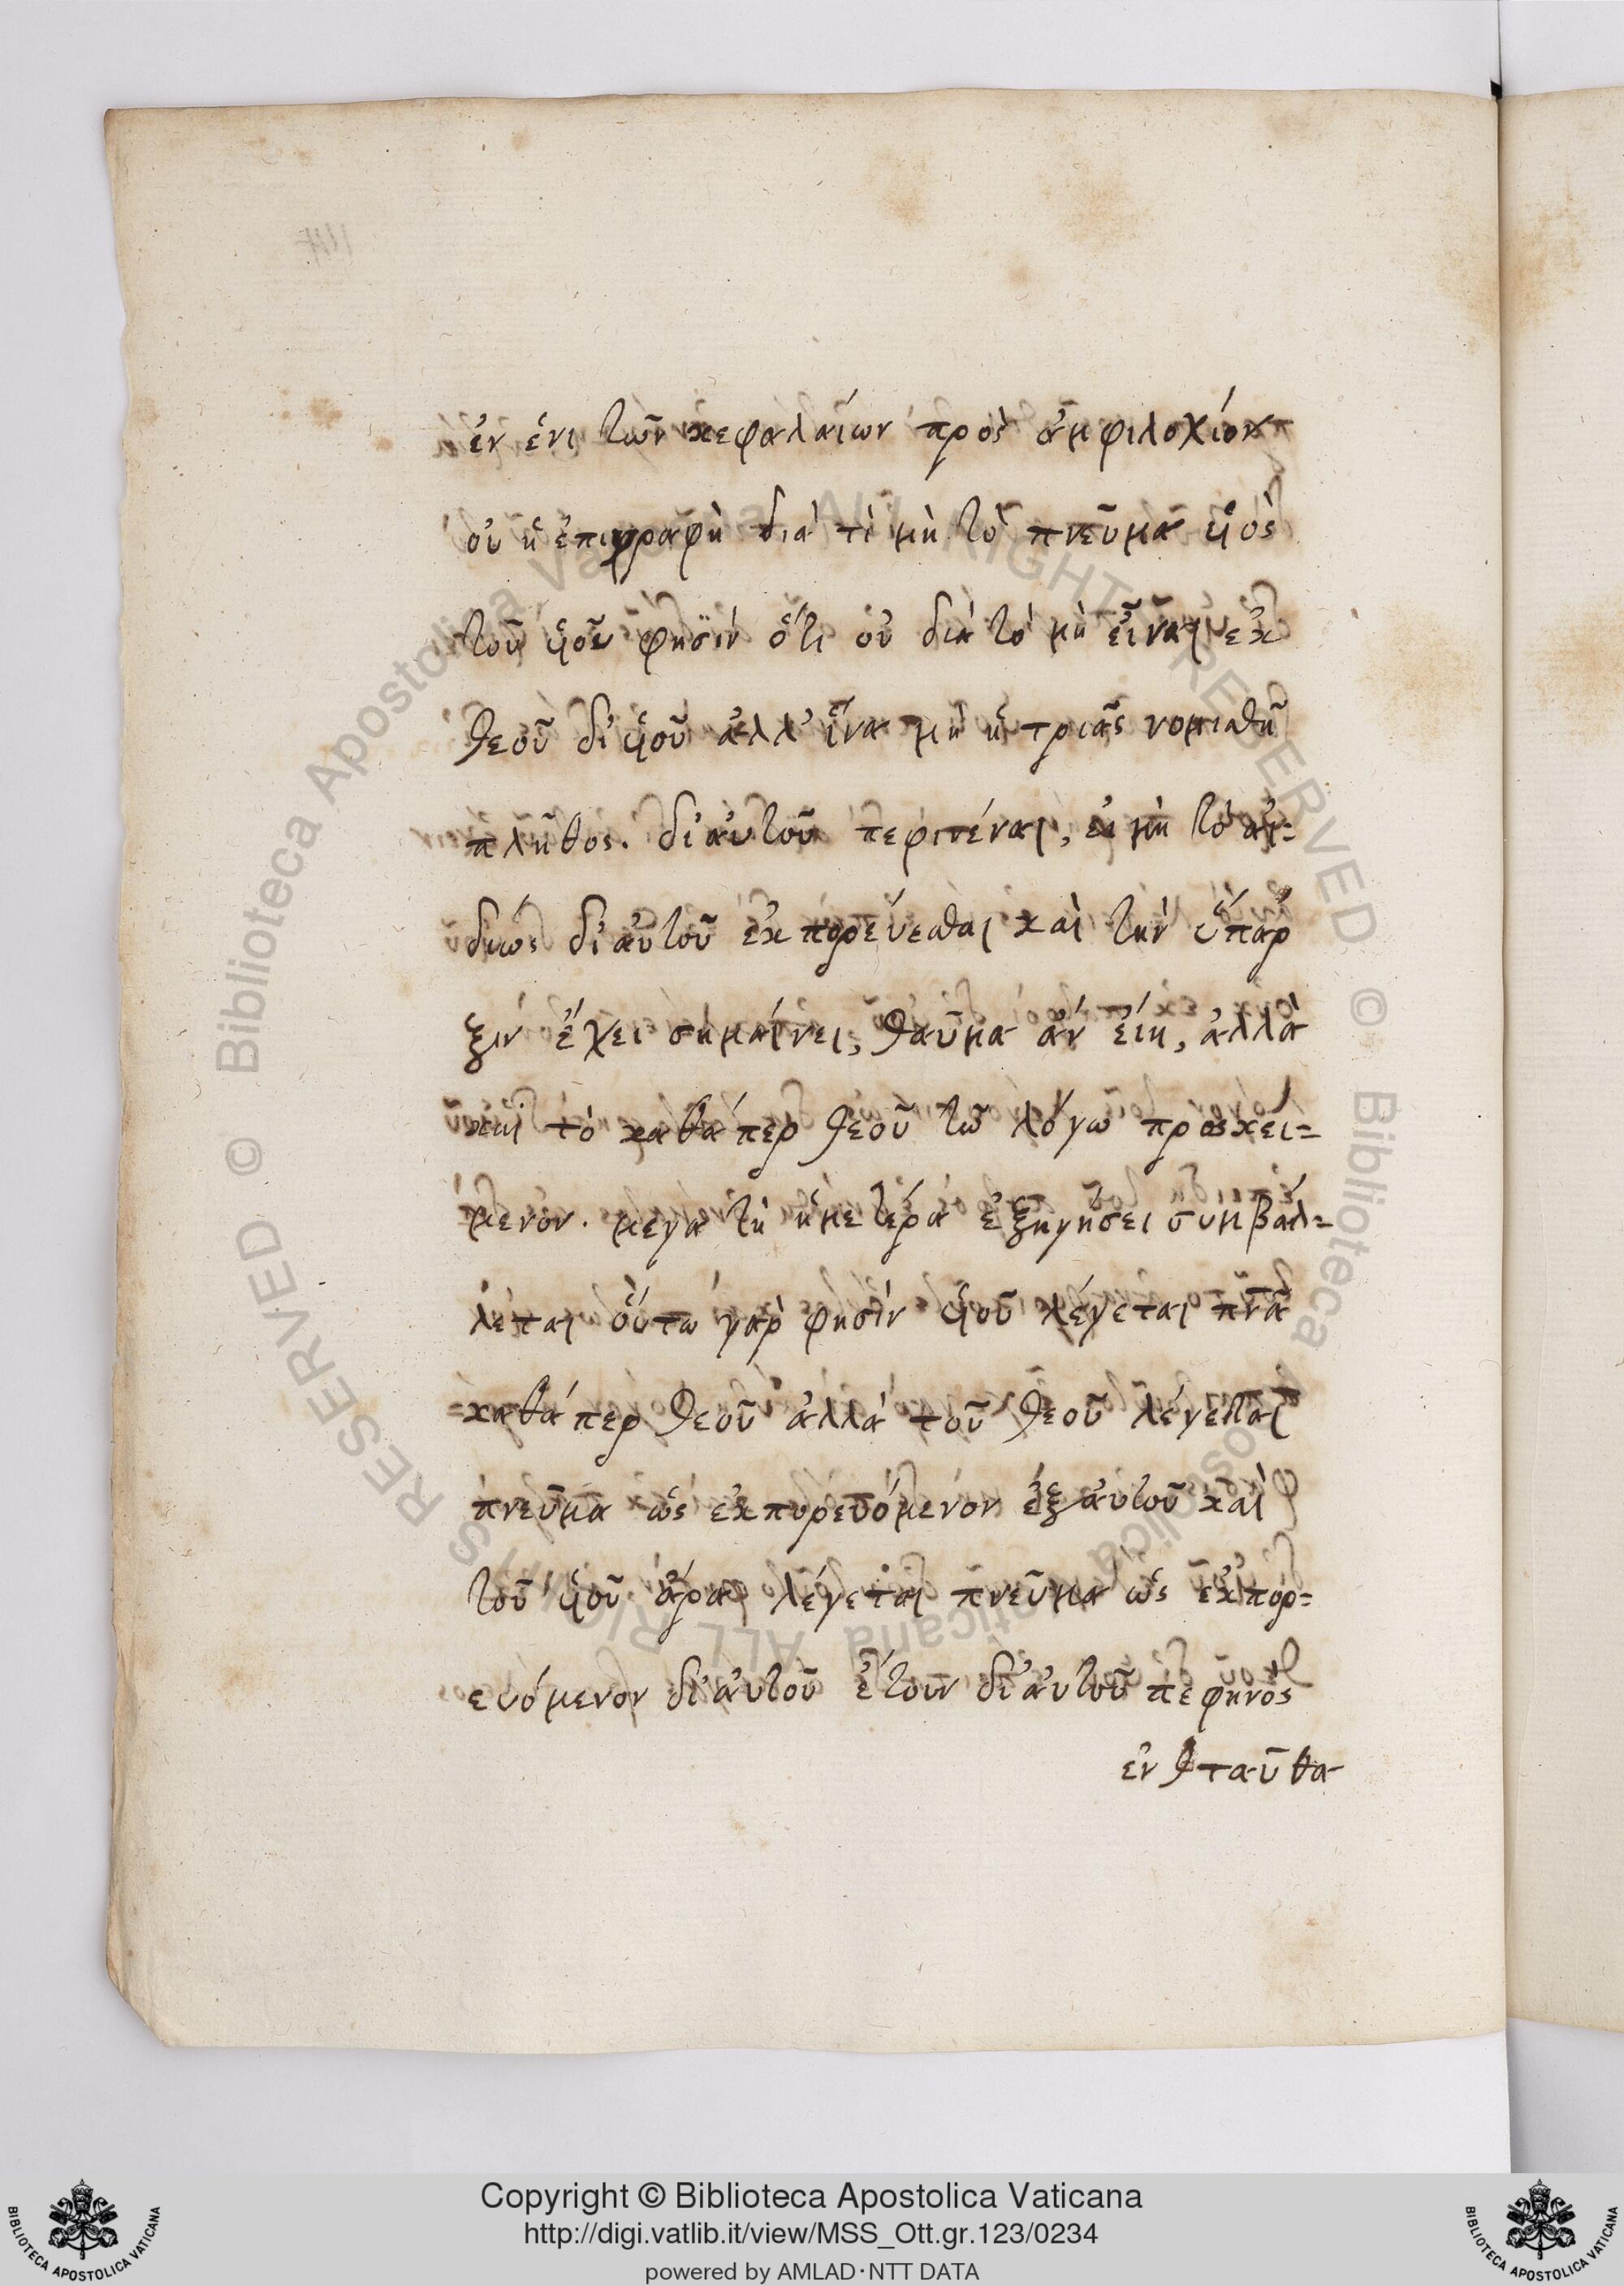 ἐν ἑνὶ τῶν κεφαλαίων πρὸς ἀμφιλοχίον
οὐ ἡ ἐπιγραφὴ διὰ τὶ μὴ τὸ πνεῦμα ὑὸς
τοῦ ὑοῦ φησὶν ὅτι οὐ διὰ τὸ μὴ εἶναι ἐκ
θεοῦ δι' ὑοῦ ἀλλ' ἵνα μὴ ἡ τριὰς νομισθῆ
πλῆθος. δι' αὐτοῦ περιιέναι, εἰ μὴ τὸ ἀι=
δίως δι' αὐτοῦ ἐκπορεύεσθαι καὶ τὴν ὕπαρ
ξιν ἔχει σημαίνει, θαῦμα ἀν εἴη, ἀλλὰ
καὶ τὸ καθάπερ θεοῦ τῶ λόγω προσκεί=
μενον. μεγα τῆ ἡμετέρα ἐξηγήσει συμβάλ=
λεται οὕτω γὰρ φησὶν ὑοῦ λέγεται πνᾶ
καθάπερ θεοῦ ἀλλὰ τοῦ θεοῦ λέγεται
πνεῦμα ὡς ἐκπορευόμενον ἐξ αὐτοῦ καὶ
τοῦ ὑοῦ ἄρα λέγεται πνεῦμα ὡς ἐκπορ=
ευόμενον δι' αὐτοῦ ἔτουν δι' αὐτοῦ πεφηνὸς
ἐνθταῦθα
Copyright © Biblioteca Apostolica Vaticana
http://digi.vatlib.it/view/MSS_Ott.gr.123/0234
powered by AMLAD·NTT DATA
BIBLIOTECA APOSTOLICA VATICANA
BIBLIOTECA APOSTOLICA VATICANA